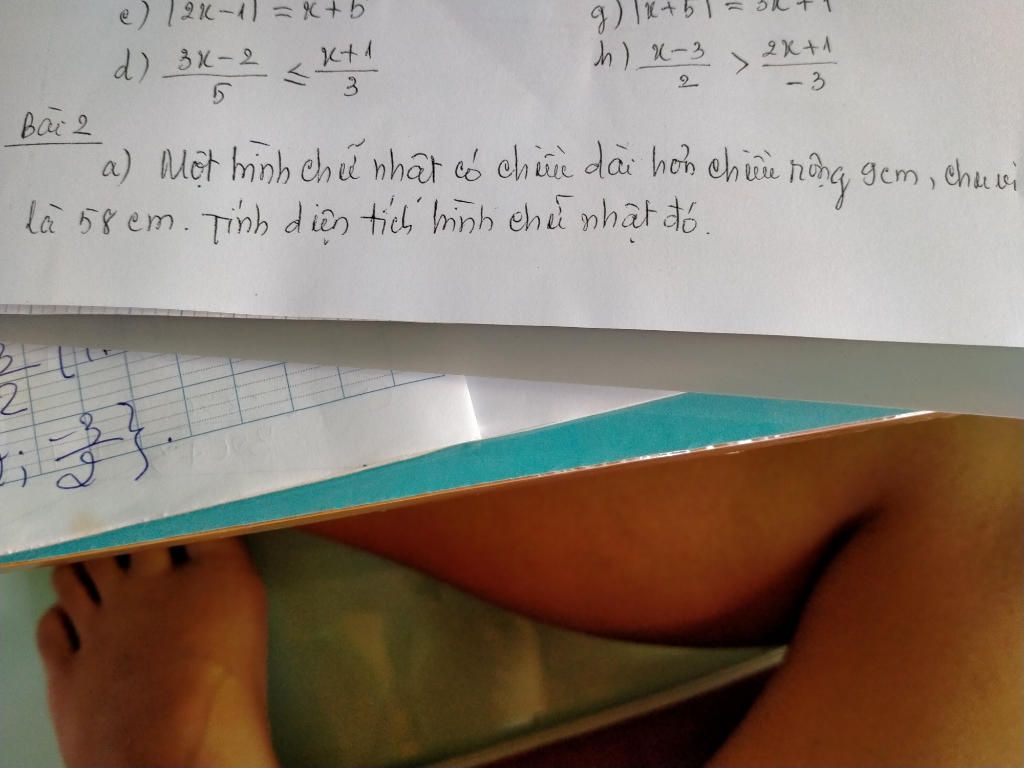 e) |2x-1| = x+5
g) |x+5| = 3x+1
d) \frac{3x-2}{5} ≤ \frac{x+1}{3}
h) \frac{x-3}{2} > \frac{2x+1}{-3}
Bài 2
a) Một hình chữ nhật có chiều dài hơn chiều rộng 9cm, chu vi
là 58 cm. Tính diện tích hình chữ nhật đó.
3
2
; \frac{-3}{2}}.